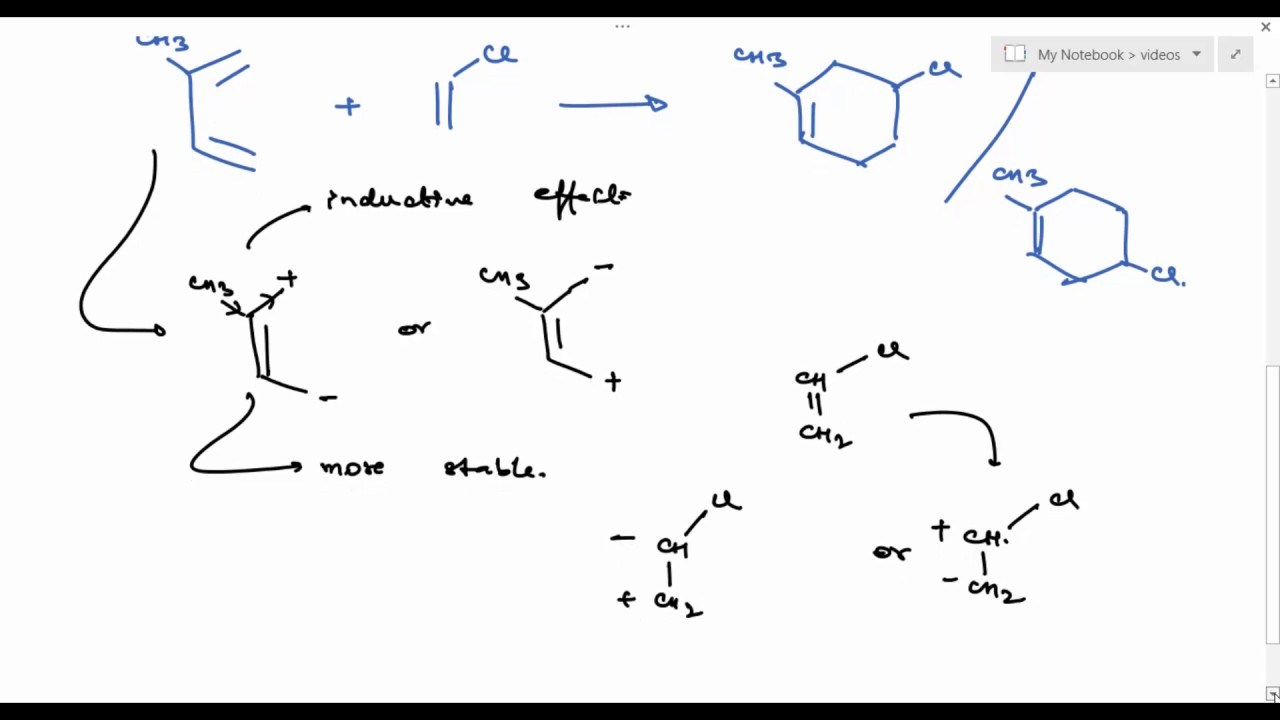 My Notebook > videos
CH3
Cl
+
CH3
Cl
CH3
Cl.
inductive effect
CH3 +
-
or
CH3 -
+
more stable.
CH Cl
CH2
- CH Cl
+ CH2
or
+ CH. Cl
- CH2